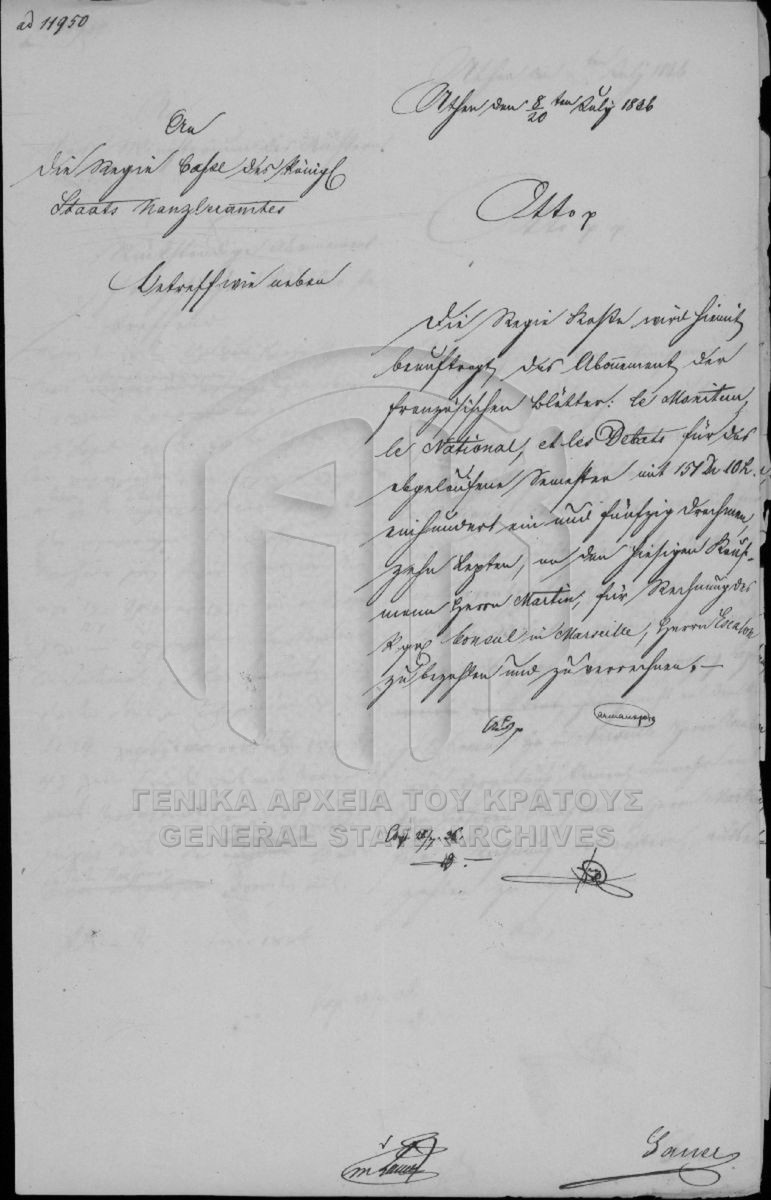 ad 11950
Athen den 8/20 ten July 1836
An
die Regie Casse des königl
Staats Kanzleramtes
Otto p
Betreff wie neben
Die Regie Kasse wird hiemit
beauftragt, das Abonnement der
französischen Blätter: le Moniteur,
le National, et les Debats für das
abgelaufene Semester mit 151 Dr 10 L.
einhundert ein und fünfzig Drachmen,
zehn Lepten, an den hiesigen Kauf-
mann Herrn Martin, für Rechnung des
Consul in Marseille, Herrn
zu bezahlen und zu verrechnen. —
ΓΕΝΙΚΑ ΑΡΧΕΙΑ ΤΟΥ ΚΡΑΤΟΥΣ
GENERAL STATE ARCHIVES